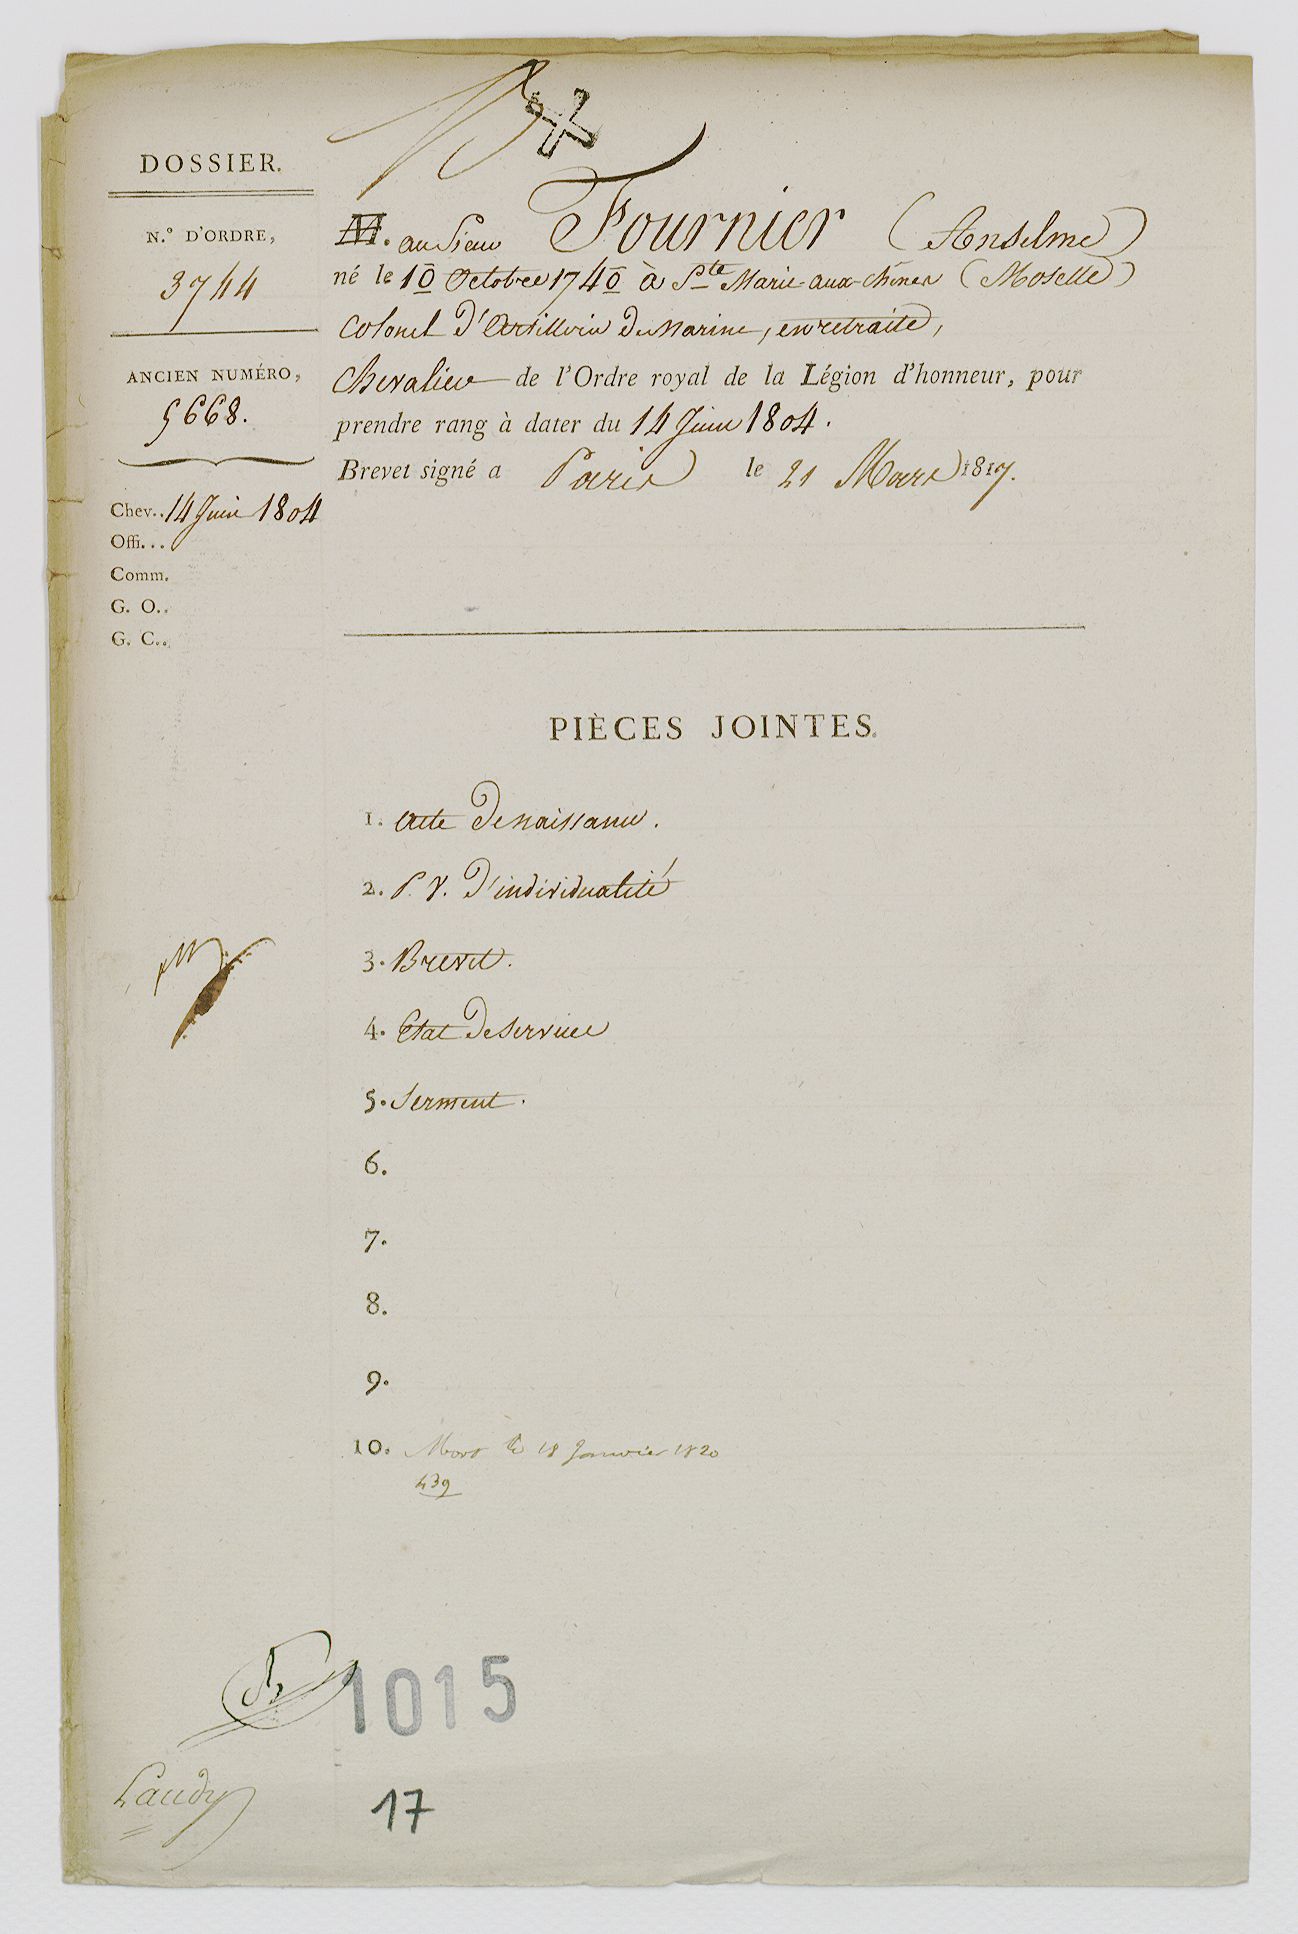 DOSSIER.
N.° D'ORDRE,
3744
ANCIEN NUMÉRO,
5668.
Chev.. 14 Juin 1804
Offi...
Comm.
G. O..
G. C..
M. au Sieur Fournier (Anselme)
né le 10 Octobre 1740 à Ste Marie-aux-chênes (Moselle)
Colonel d'Artillerie de Marine, en retraite,
Chevalier de l'Ordre royal de la Légion d'honneur, pour
prendre rang à dater du 14 Juin 1804.
Brevet signé a Paris le 21 Mars 1817.
PIÈCES JOINTES.
1. Acte de naissance.
2. P. V. d'individualité
3. Brevet.
4. Etat de service
5. Serment.
6.
7.
8.
9.
10. Mort le 18 Janvier 1820
439
1015
Laudy
17